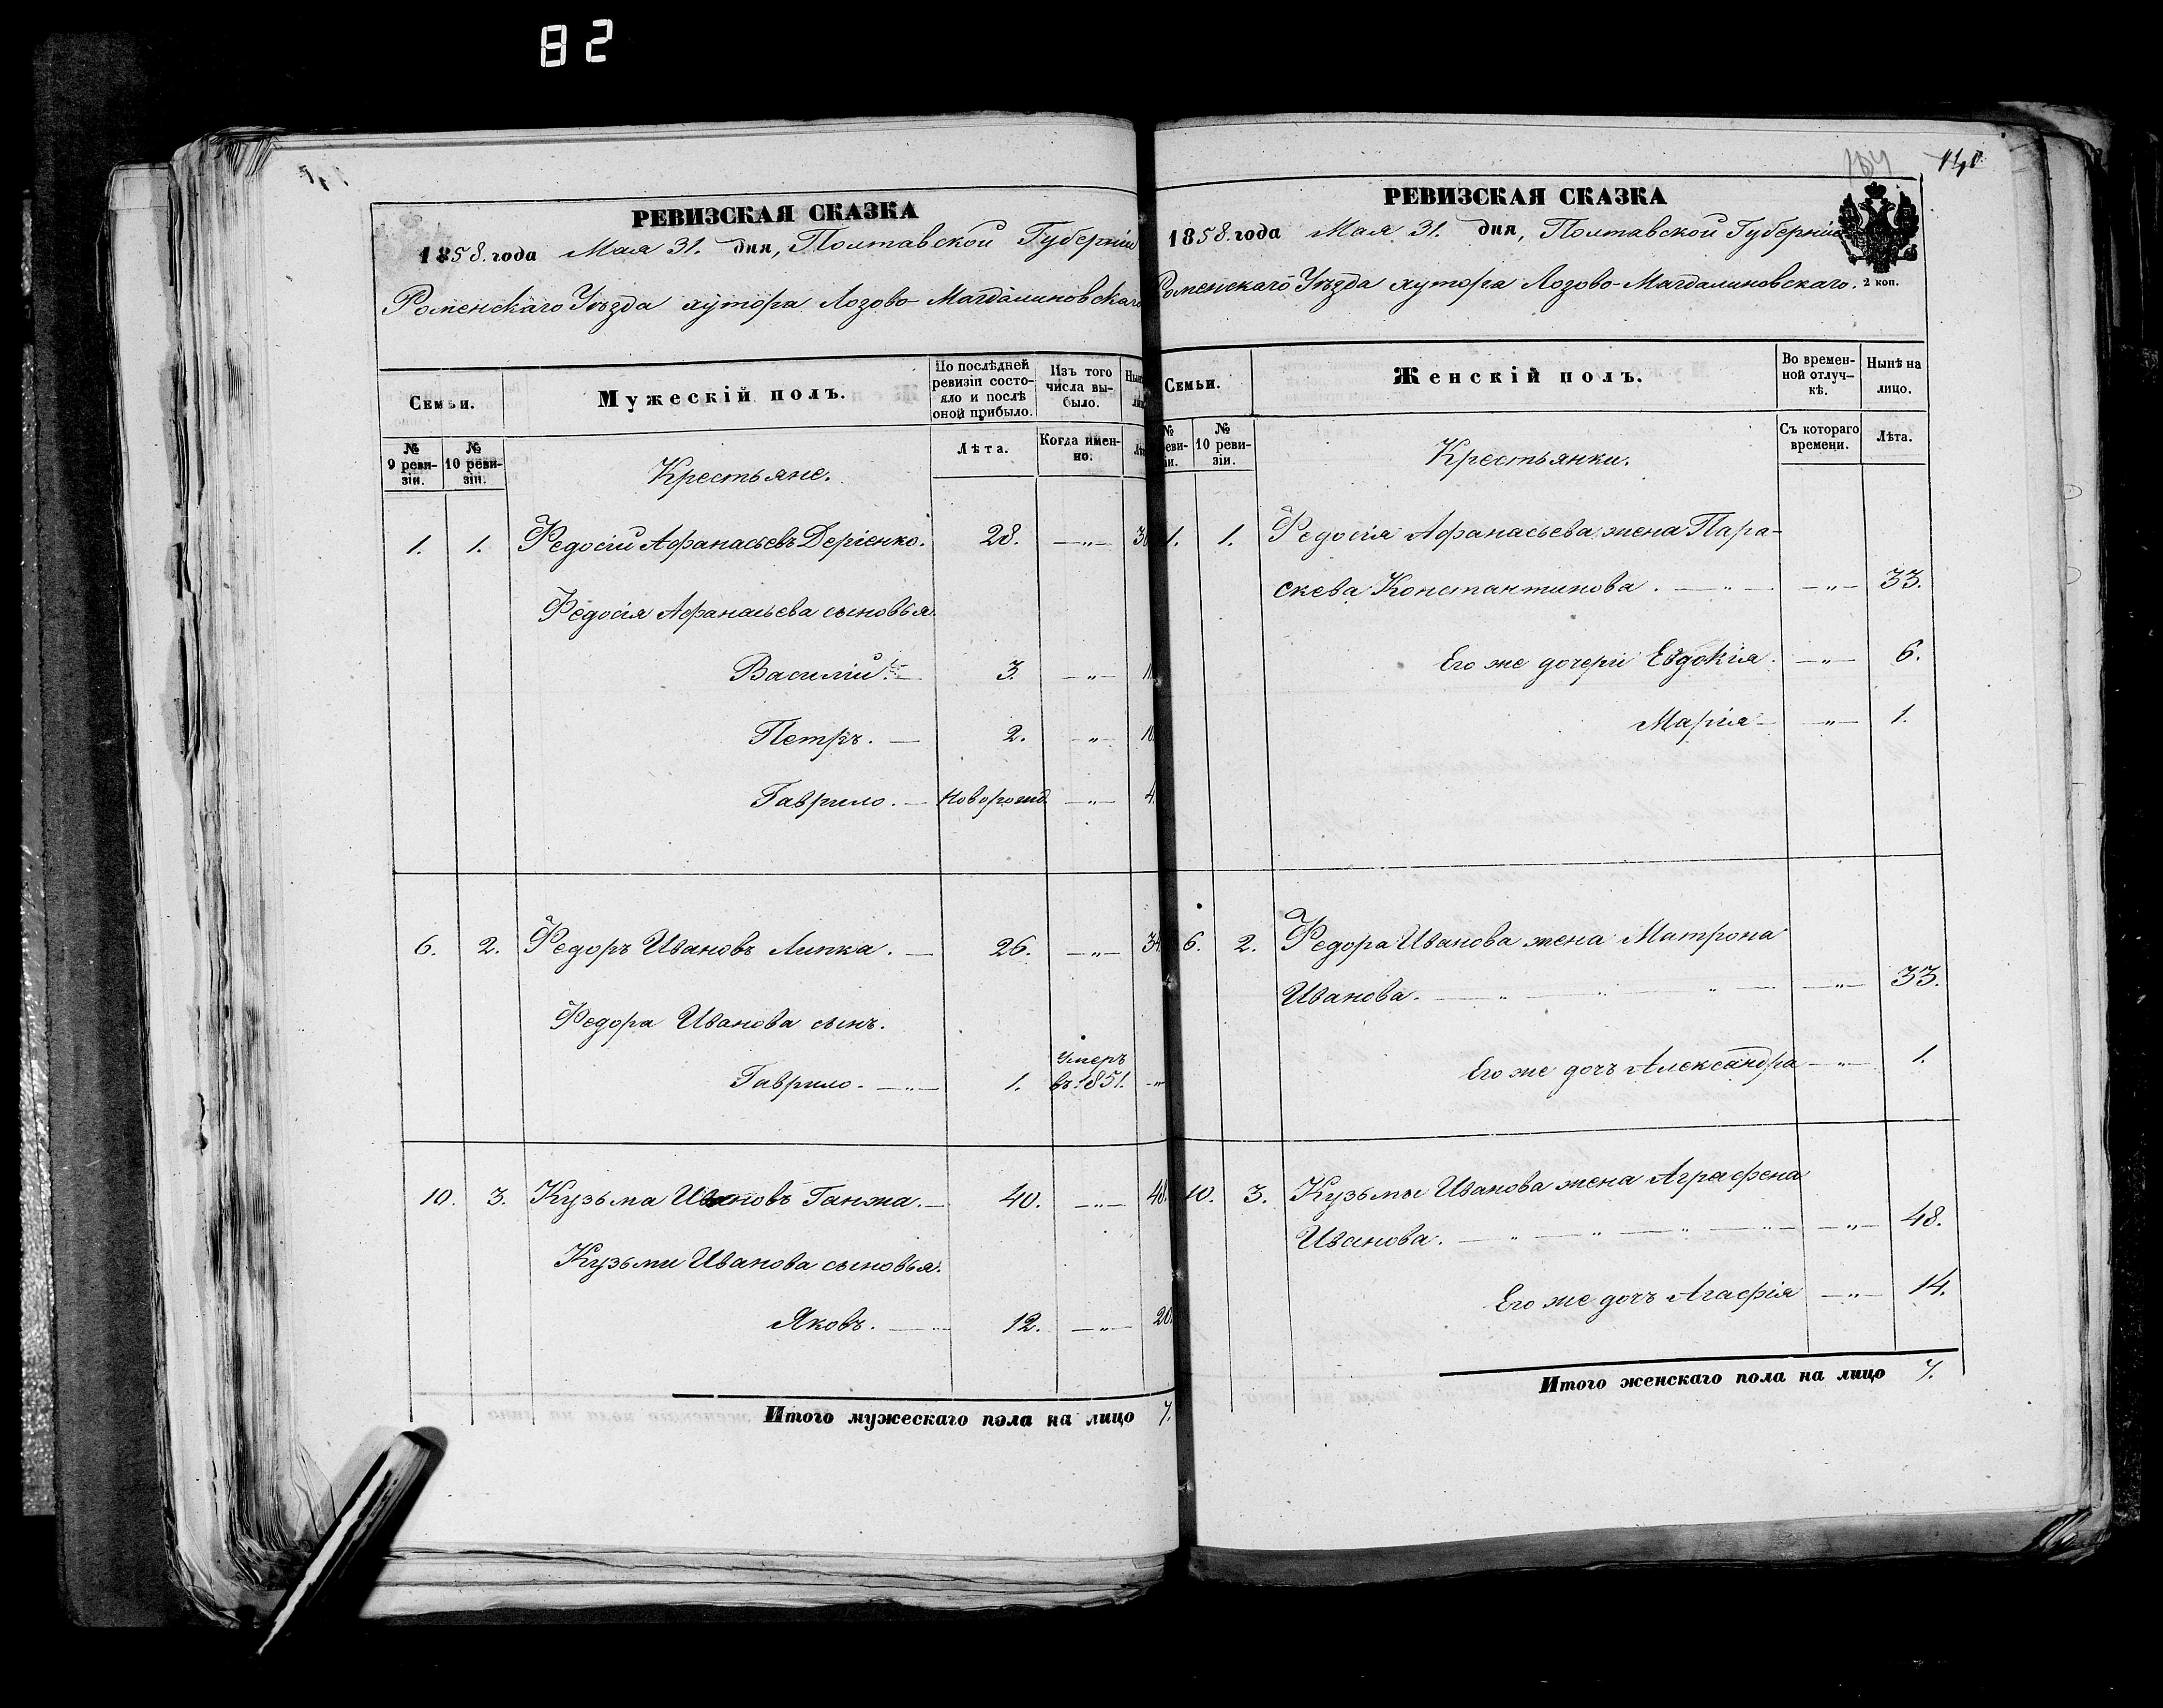 82
РЕВИЗСКАЯ СКАЗКА
1858. года Мая 31. дня, Полтавской Губерніи
Роменскаго Уѣзда хутора Лозово-Магдалиновскаго
Семьи.
Мужескій полъ.
По послѣдней ревизіи состояло и послѣ оной прибыло.
Изъ того числа выбыло.
№ 9 ревизіи.
№ 10 ревизіи.
Лѣта.
Когда именно.
Крестьяне.
1. 1. Федосій Афанасьевъ Деріенко. 28. —„—
Федосія Афанасьева сыновья
Василій. — 3. —„—
Петръ. — 2. —„— 10.
Гаврило. — Новорожд. —„— 4.
6. 2. Федоръ Ивановъ Липка. — 26. —„— 34
Федора Иванова сынъ.
Умеръ
Гаврило. —„— 1. въ 1851. —„
10. 3. Кузьма Ивановъ Ганжа. — 40. —„— 48.
Кузьми Иванова сыновья.
Яковъ. — 12. —„— 20.
Итого мужескаго пола на лицо 7.
184 141
РЕВИЗСКАЯ СКАЗКА
1858. года Мая 31. дня, Полтавской Губерніи
Роменскаго Уѣзда хутора Лозово-Магдалиновскаго. 2 коп.
Семьи.
Женскій полъ.
Во временной отлучкѣ.
Нынѣ на лицо.
№ 10 ревизіи.
Съ котораго времени.
Лѣта.
Крестьянки.
1. 1. Федосія Афанасьева жена Пара-
скева Константинова. —„— —„— 33.
Его же дочери Евдокія. —„— 6.
Марія — —„— 1.
6. 2. Федора Иванова жена Матрона
Иванова. —„—„—„— —„— 33.
Его же дочь Александра —„— 1.
10. 3. Кузьмы Иванова жена Аграфена
Иванова. —„—„—„—„— —„— 48.
Его же дочь Агафія —„— 14.
Итого женскаго пола на лицо 7.